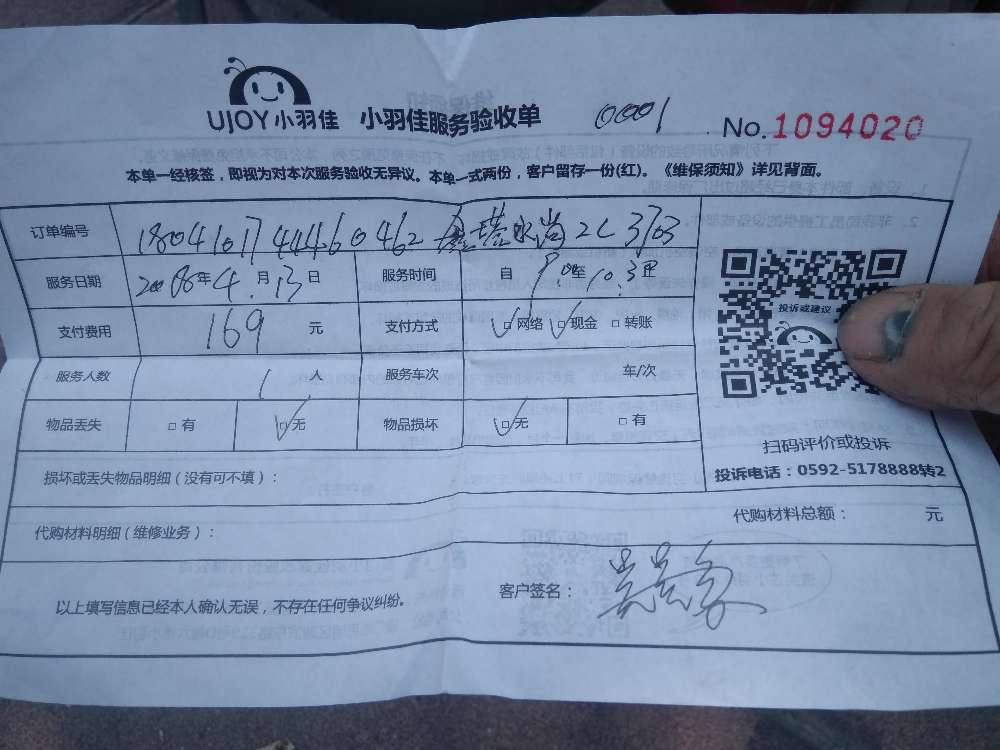 UJOY小羽佳 小羽佳服务验收单 0001 No.1094020
本单一经核签，即视为对本次服务验收无异议。本单一式两份，客户留存一份(红)。《维保须知》详见背面。
订单编号 180410174446 0462 2C 3703
服务日期 2018年4月13日 服务时间 自9:00至10:30
支付费用 169元 支付方式 □网络 □现金 □转账
服务人数 1人 服务车次 车/次
物品丢失 □有 □无 物品损坏 □无 □有
投诉或建议
扫码评价或投诉
投诉电话：0592-5178888转2
损坏或丢失物品明细（没有可不填）：
代购材料总额： 元
代购材料明细（维修业务）：
客户签名：
以上填写信息已经本人确认无误，不存在任何争议纠纷。